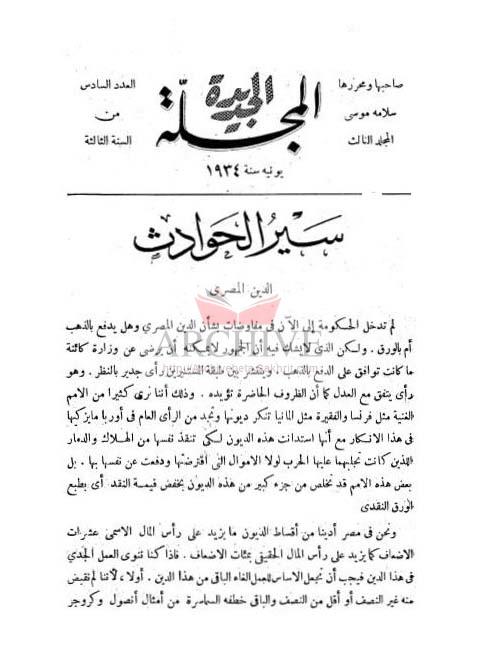 صاحبها ومحررها
سلامه موسى
المجلد الثالث
المجلة الجديدة
العدد السادس
من
السنة الثالثة
يونيه سنة ١٩٣٤
سير الحوادث
الدين المصرى
لم تدخل الحكومة إلى الآن فى مفاوضات بشأن الدين المصري وهل يدفع بالذهب
أم بالورق . ولكن الذى لا يشك فيه أن الجمهور لا يمكنه أن يرضى عن وزارة كائنة
ما كانت توافق على الدفع بالذهب . وينتشر بين طبقة رأى جدير بالنظر . وهو
رأى يتفق مع العدل كما أن الظروف الحاضرة تؤيده . وذلك أننا نرى كثيرا من الامم
الغنية مثل فرنسا والفقيرة مثل المانيا تنكر ديونها وتجد من الرأى العام فى أوربا ما يزكيها
فى هذا الانكار مع أنها استدانت هذه الديون لكى تنقذ نفسها من الهلاك والدمار
اللذين كانت تجلبهما عليها الحرب لولا الاموال التى اقترضتها ودفعت عن نفسها بها . بل
بعض هذه الامم قد تخلص من جزء كبير من هذه الديون بخفض قيمة النقد أى بطبع
الورق النقدى
ونحن فى مصر أدينا من أقساط الديون ما يزيد على رأس المال الاسمى عشرات
الاضعاف كما يزيد على رأس المال الحقيقى بمئات الاضعاف . فاذا كنا ننوى العمل الجدي
فى هذا الدين فيجب أن نجعل الاساس للعمل الغاء الباقى من هذا الدين . أولا ، لأننا لم نقبض
منه غير النصف أو أقل من النصف والباقى خطفه السماسرة من أمثال أنصول وكروجر
ARCHIVE